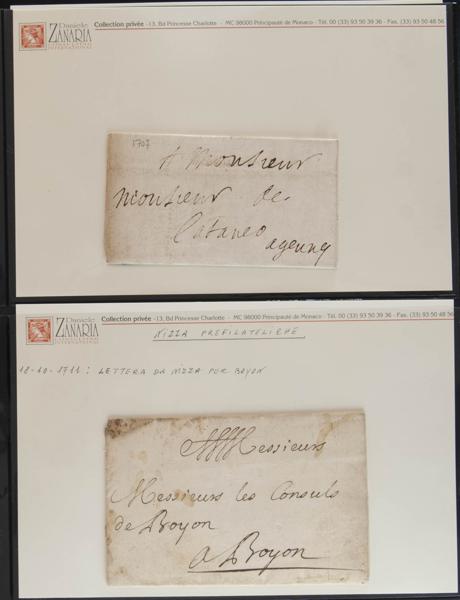 Daniele
ZANARIA
Collection privée - 13, Bd Princesse Charlotte - MC 98000 Principauté de Monaco - Tél. 00 (33) 93 50 39 36 - Fax. (33) 93 50 48 56
1707
A Monsieur
Monsieur de
Cataneo
Daniele
ZANARIA
Collection privée - 13, Bd Princesse Charlotte - MC 98000 Principauté de Monaco - Tél. 00 (33) 93 50 39 36 - Fax. (33) 93 50 48 56
NIZZA PREFILATELICHE
18-10-1711: LETTERA DA NIZZA PER BOYON
Messieurs
Messieurs les Consuls
de Boyon
a Boyon